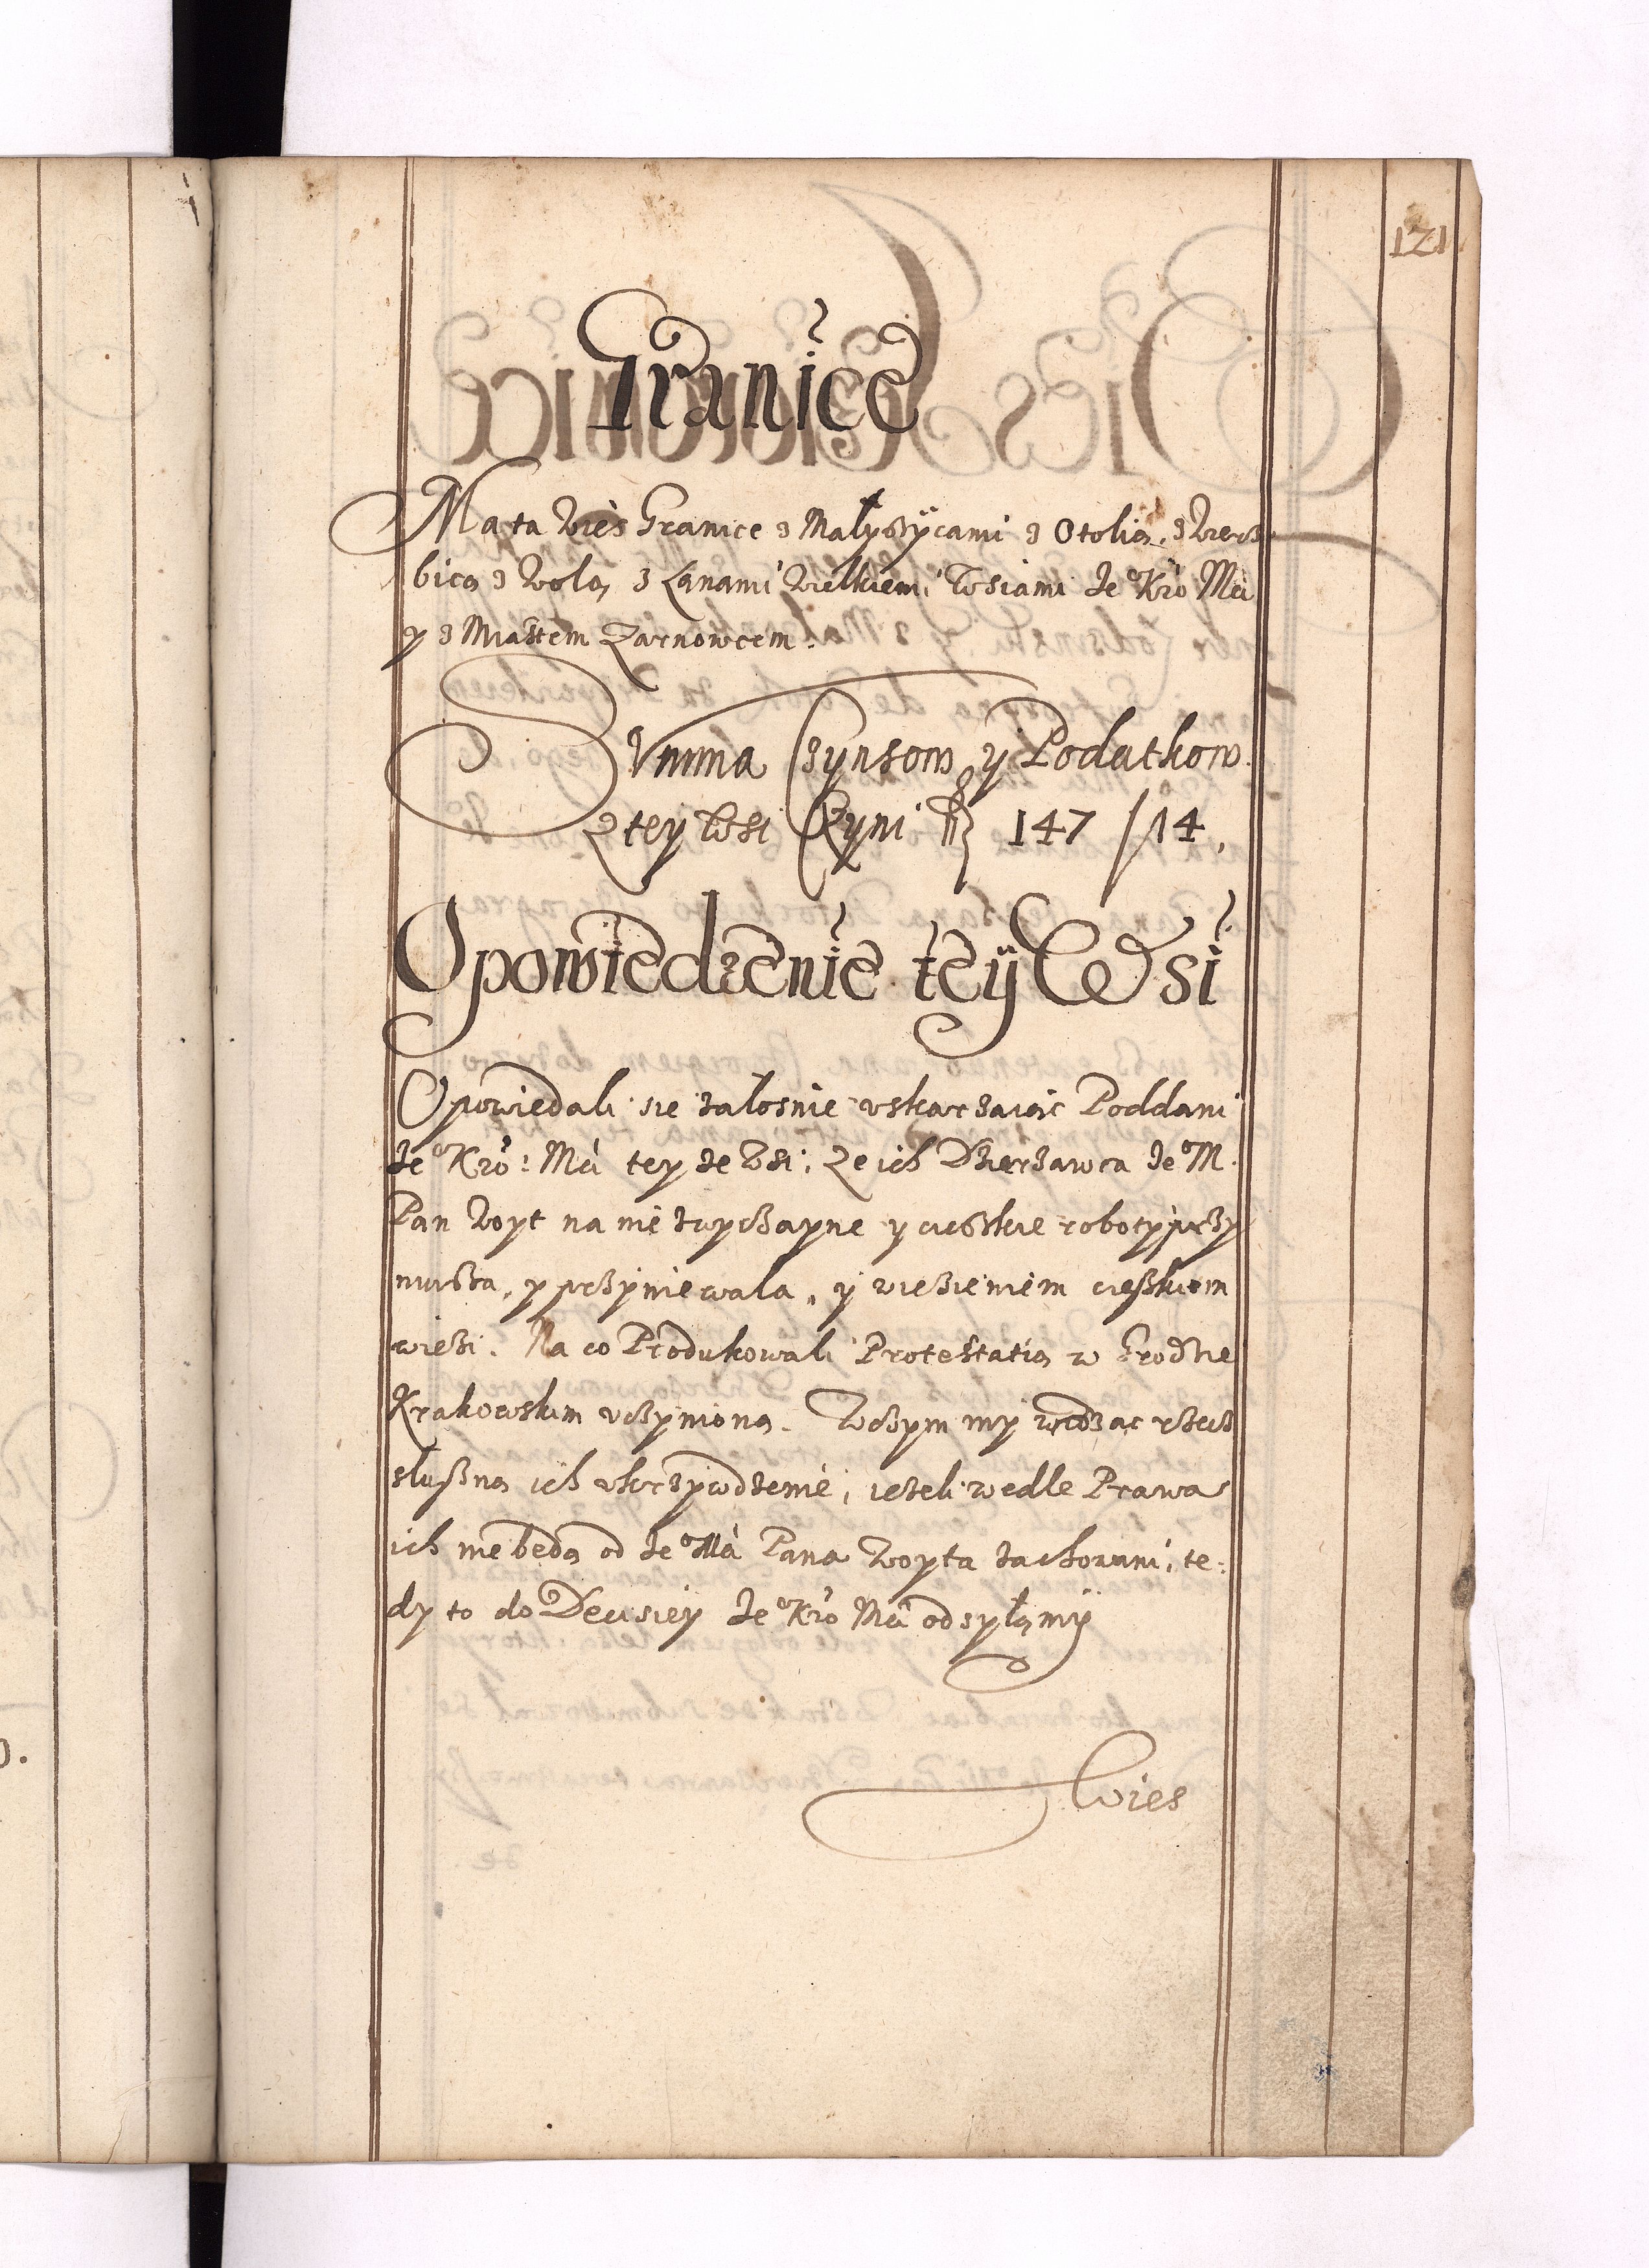 121
Granice
Ma ta Wieś Granice z Małyszycami z Otolią, z Wierz
bicą z Wolą, z Łanami Wielkiemi Wsiami Je° Kró Mći
y z Miastem Zarnowcem.
Summa Czynsow y Podatkow
Z tey Wsi Czyni fl 147 / 14,
Opowiedzenie tey Wsi
Opowiedali sie załosnie uskarzaiąc Poddani
Je° Kró: Mći tey ze Wsi, Ze ich Dzierzawca Je° M.
Pan Woyt na nie zwyczayne y cieszkie roboty przy
musza, y przyniewala, y wiezieniem cieszkiem
wiezi. Na co Produkowali Protestatią w Grodzie
Krakowskim uczynioną. W czym my widzac rzecz
sluszną ich ukrzywdzenie, iezeli wedle Prawa
ich nie bedą od Je° Mći Pana Woyta zachowani, te:
dy to do Decisiey Je° Kró Mći odsyłamy
Wies